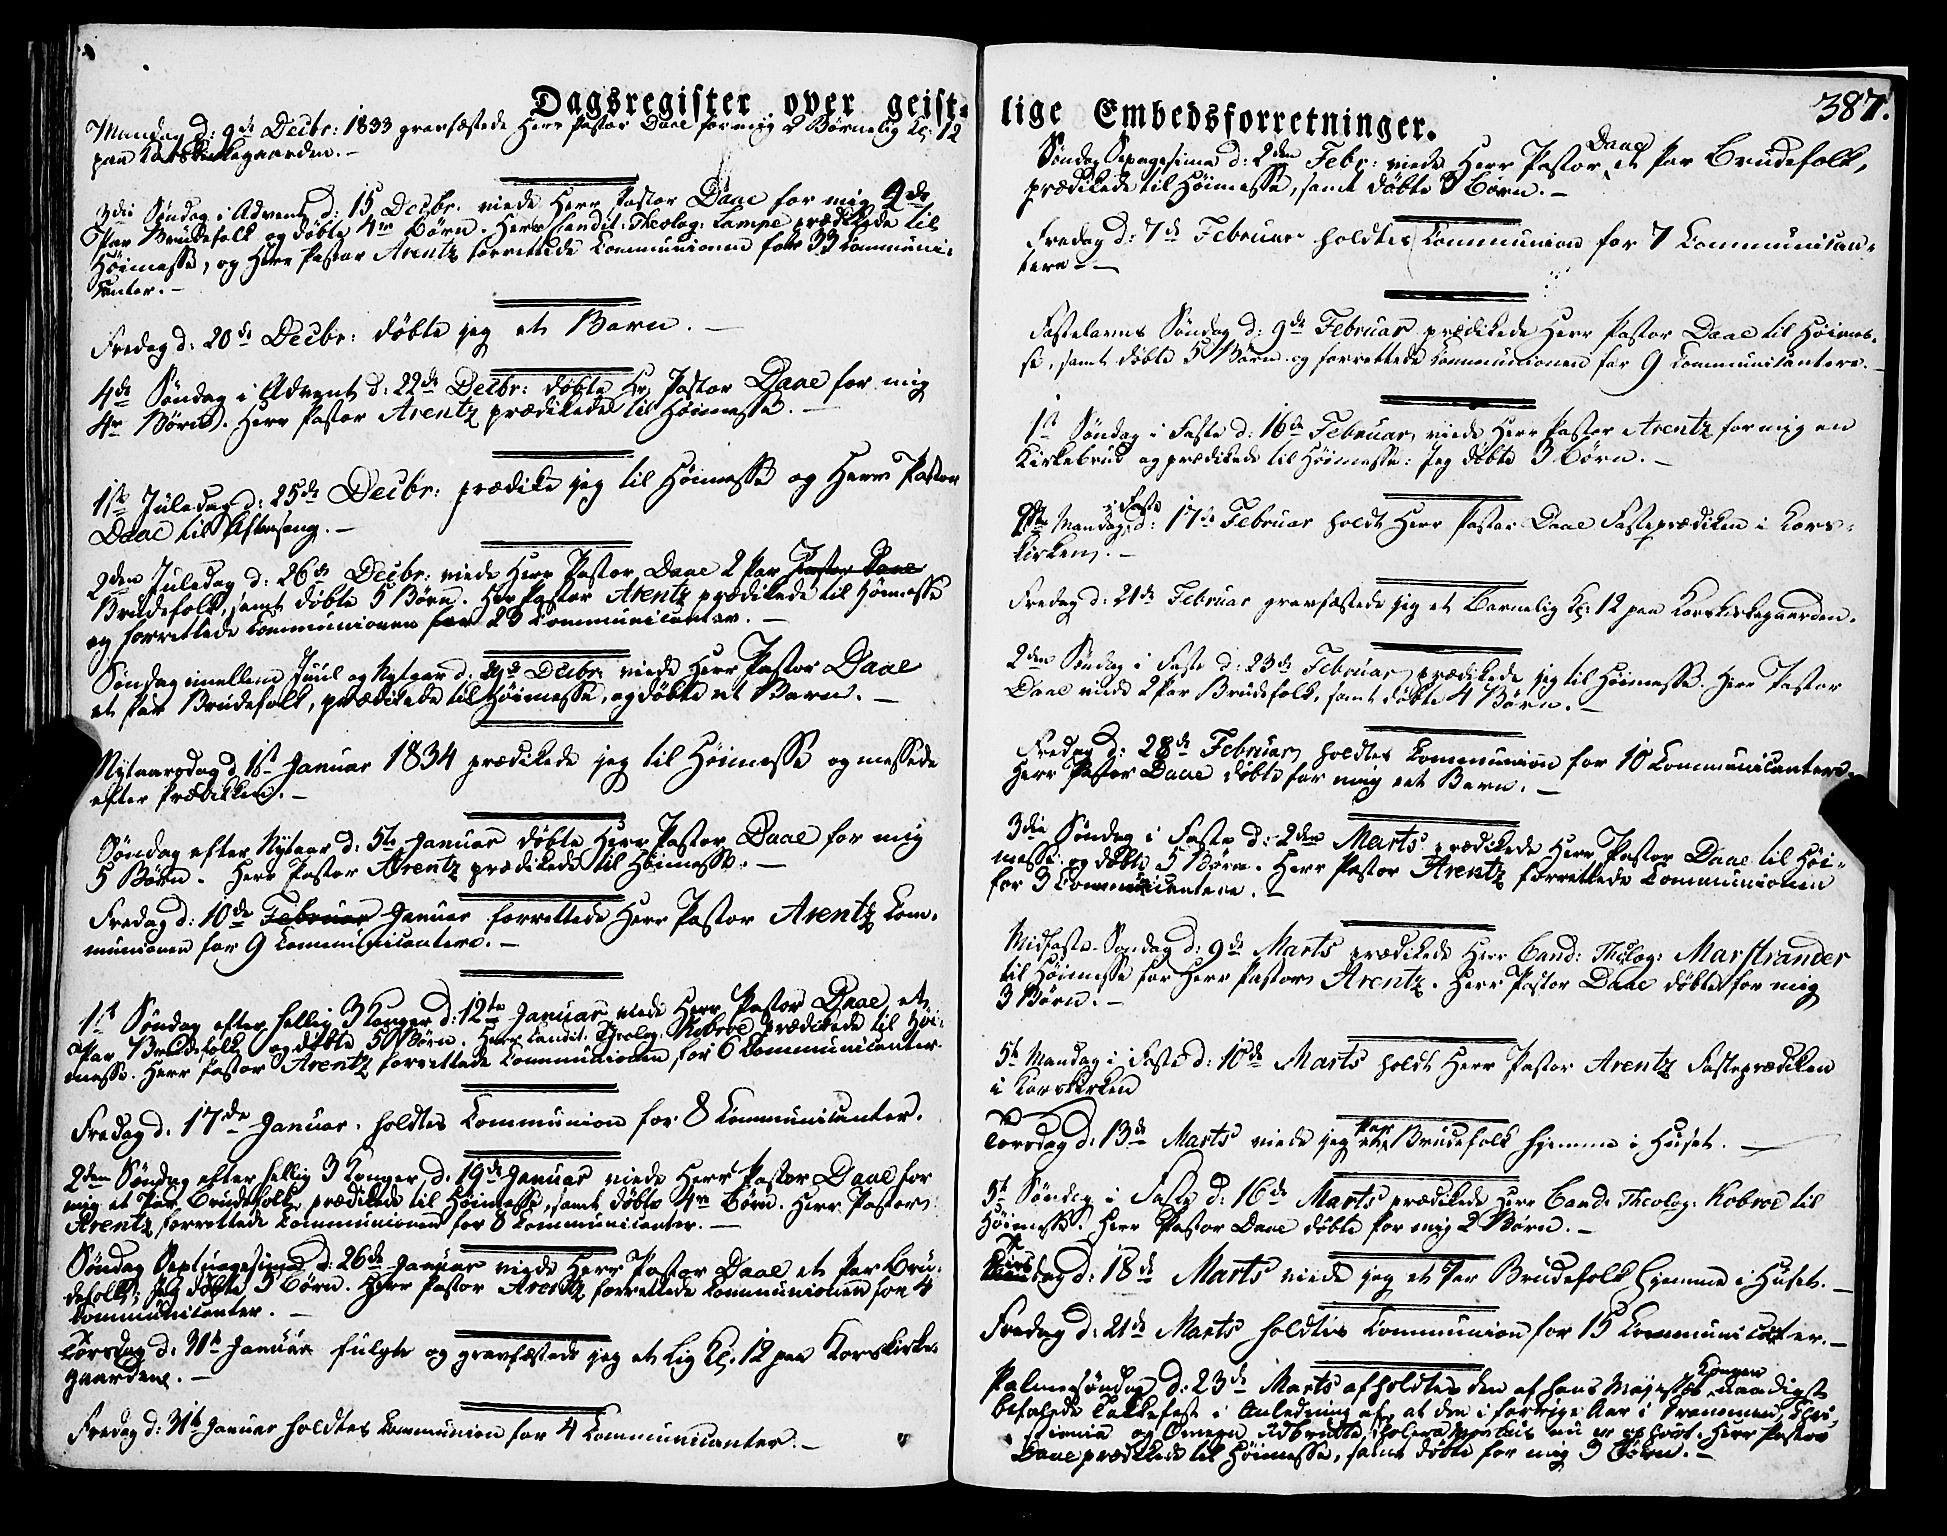 Dagsregister over geist-
Mandag d: 9de Decbr: 1833 gravfæstede Herr Pastor Daae for mig 2 Børnelig Kl: 12
paa Korskirkegaarden.-
3die Søndag i Advent d: 15 Decbr. viede Herr Pastor Daae for mig 2de
Par Brudefolk og døbte 4re Børn. Herr Candit: Theolog: Lampe prædikede til
Høimesse, og Herr Pastor Arentz forrettede Communionen for 33 Communi-
canter.-
Fredag d: 20de Decbr: døbte jeg et Barn.-
4de Søndag i Advent d: 22de Decbr: døbte Hr. Pastor Daae for mig
4re Børn. Herr Pastor Arentz prædikede til Høimesse.-
1ste Juledag d: 25de Decbr: prædike jeg til Høimesse og Herr Pastor
Daae til Aftensang.-
2den Juledag d: 26de Decbr: viede Herr Pastor Daae 2 Par Pastor Daae
Brudefolk, samt døbte 5 Børn. Herr Pastor Arentz prædikede til Høimesse
og forrettede Communionen for 23 Communicanter.-
Søndag imellem Juul og Nytaar d: 29de Decbr: viede Herr Pastor Daae
et Par Brudefolk, prædikede til Høimesse, og døbte et Barn.-
Nytaarsdag d. 1ste Januar 1834 prædikede jeg til Høimesse og messede
efter Prædikken.-
Søndag efter Nytaar d: 5te Januar døbte Herr Pastor Daae for mig
5 Børn. Herr Pastor Arentz prædikede til Høimesse.-
Fredag d: 10de Februar Januar forrettede Herr Pastor Arentz Com-
munionen for 9 Communicantere.-
1ste Søndag efter hellig 3 Konger d: 12te Januar viede Herr Pastor Daae et
Par Brudefolk og døbte 5 Børn. Herr Candit. Theolg. Kobroe prædikede til Høi-
messe. Herr Pastor Arentz forrettede Communionen for 6 Communicanter
Fredag d. 17de Januar. holdtes Communion for 8 Communicanter.
2den Søndag efter hellig 3 Konger d: 19de Januar viede Herr Pastor Daae for
mig et Par Brudefolk, prædikede til Høimesse, samt døbte 4re Børn. Herr Pastor
Arentz forrettede Communionen for 8 Communicanter.-
Søndag Septuagesima d: 26de Januar viede Herr Pastor Daae et Par Bru-
defolk; jeg døbte 5 Børn. Herr Pastor Arentz forrettede Communionen for 4
Communicanter.-
Torsdag d: 31te Januar fulgte og gravfæstede jeg et Lig Kl. 12 paa Korskirke-
gaarden.-
Fredag d: 31te Januar holdtes Communion for 4 Communicanter.-
lige Embedsforretninger.
387.
Daae
Søndag Sexagesima d: 2den Febr: viede Herr Pastor et Par Brudefolk,
prædikede til Høimesse, samt døbte 3 Børn.-
Fredag d: 7de Februar holdtes Communion for 7 Communican-
tere.-
Fastelavns Søndag d: 9de Februar prædikede Herr Pastor Daae til Høimes-
se, samt døbte 5 Børn og forrettede Communionen for 9 Communicantere.-
1ste Søndag i Faste d: 16de Februar, viede Herr Pastor Arentz for mig en
Kirkebrud og prædikede til Høimesse: Jeg døbte 3 Børn.-
i Faste
Mandag d: 17de Februar holdt Herr Pastor Daae Fasteprædiken i Kors-
kirken.-
Fredag d: 21de Februar gravfæstede jeg et Barnelig Kl: 12 paa Korskirkegaarden.
2den Søndag i Faste d: 23de Februar prædikede jeg til Høimesse. Herr Pastor
Daae viede 2 Par Brudefolk, samt døbte 4 Børn.-
Fredag d: 28de Februar holdtes Communion for 10 Communicantere.
Herr Pastor Daae døbte for mig eet Barn.-
3die Søndag i Faste d: 2den Marts prædikede Herr Pastor Daae til Høi-
messe og døbte 5 Børn. Herr Pastor Arentz forrettede Communionen
for 3 Communicantere.-
Midfaste-Søndag d: 9de Marts prædikede Herr Cand: Theolog: Marstrander
til Høimesse for Herr Pastor Arentz. Herr Pastor Daae døbte for mig
3 Børn.-
5te Mandag i Faste d: 10de Marts holdt Herr Pastor Arentz Fasteprædiken
i Korskirken
Par
Torsdag d: 13de Marts viede jeg et Brudefolk hjemme i Huset.-
5te Søndag i Faste d: 16de Marts prædikede Herr Cand: Theolog: Kobroe til
Høimesse. Herr Pastor Daae døbte for mig 2 Børn.-
Tirsdag d: 18de Marts viede jeg et Par Brudefolk hjemme i Huset.-
Fredag d: 21de Marts holdtes Communion for 15 Communicanter.-
Kongen
Palmesøndag d: 23de Marts afholdtes den af Hans Majestet naadigst
befalede Takkefest i Anledning af, at den i forrige Aar i Drammen, Chri-
stiania og Omegn udbrudte Cholera Morbus nu er ophørt. Herr Pastor
Daae prædikede til Høimesse, samt døbte for mig 3 Børn.-